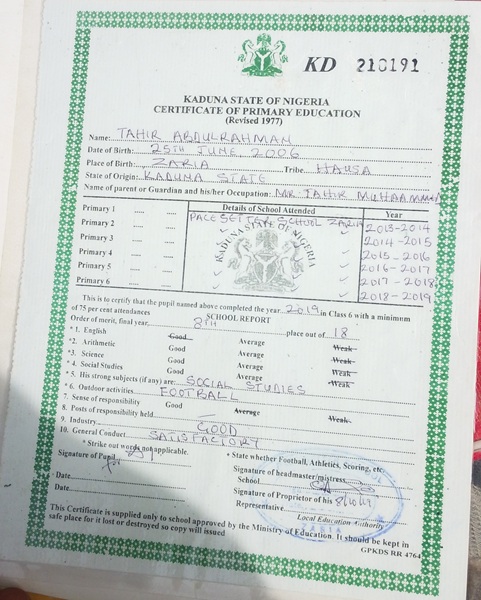 KD 210191
KADUNA STATE OF NIGERIA
CERTIFICATE OF PRIMARY EDUCATION
(Revised 1977)
Name: TAHIR ABDULRAHMAN
Date of Birth: 25TH JUNE, 2006
Place of Birth: ZARIA Tribe HAUSA
State of Origin: KADUNA STATE
Name of parent or Guardian and his/her Occupation: MR. TAHIR MUHAAMMAD
Details of School Attended Year
Primary 1 ..... ..... PACESETTER SCHOOL ZARIA 2013-2014
Primary 2 ..... ..... 2014-2015
Primary 3 ..... ..... 2015-2016
Primary 4 ..... ..... 2016-2017
Primary 5 ..... ..... 2017-2018
Primary 6 ..... ..... 2018-2019
KADUNA STATE OF NIGERIA
This is to certify that the pupil named above completed the year 2019 in Class 6 with a minimum
of 75 per cent attendances
SCHOOL REPORT
Order of merit, final year, 8TH place out of 18
* 1. English Good Average Weak
*2. Aritmetic Good Average Weak
*3. Science Good Average Weak
* 4. Social Studies Good Average Weak
* 5. His strong subjects (if any) are: SOCIAL STUDIES
* 6. Outdoor activities FOOTBALL
7. Sense of responsibility Good Average Weak
8. Posts of responsibility held
9. Industry GOOD
10. General Conduct SATISFACTORY
* Strike out words not applicable.
• State whether Football, Athletics, Scoring, etc.
Signature of Pupil
for
Signature of headmaster/mistress
School
Date
Signature of Proprietor of his 8/10/19
Representative
Date
Local Education Authority
ZARIA
This Certificate is supplied only to school approved by the Ministry of Education. It should be kept in
safe place for it lost or destroyed so copy will issued
GPKDS RR 4764